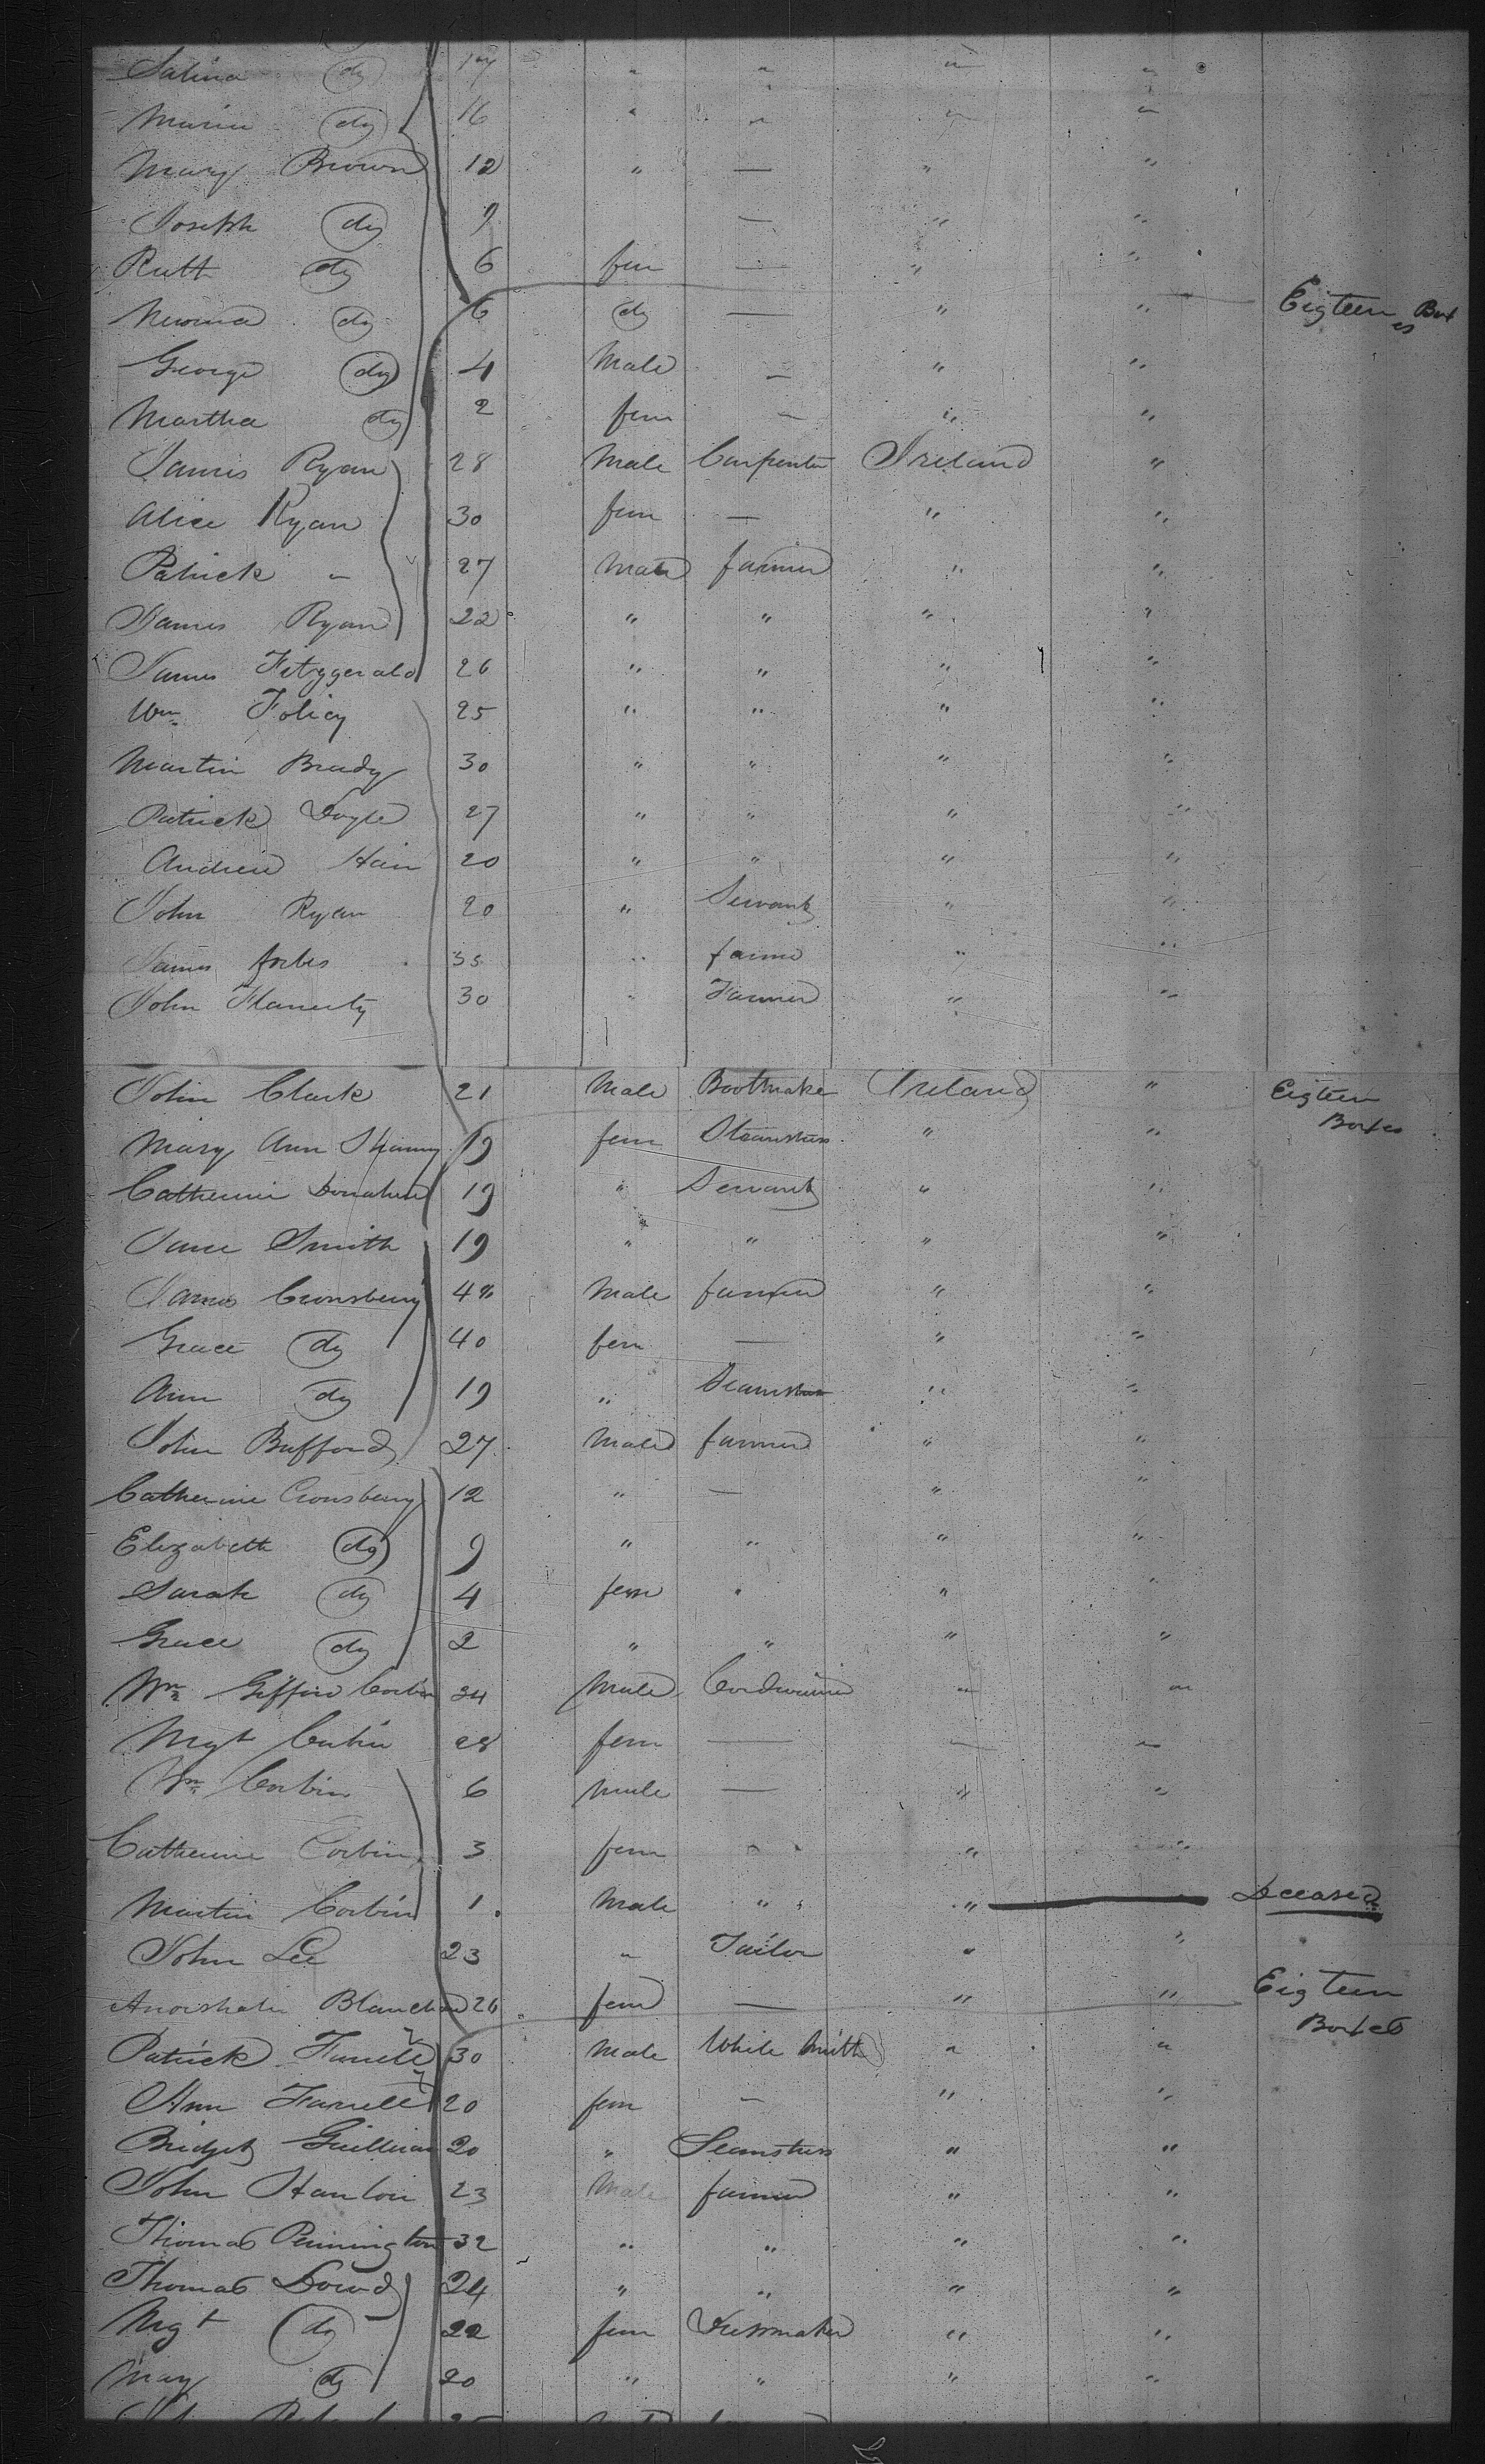 Salina do 17 " " " "
Maria do 16 " " " "
Mary Brown 12 " — " "
Joseph do 9 — " "
Ruth do 6 fem — " "
do 6 do — " " Eigteen Box es
George do 4 Male — " "
Martha do 2 fem — " "
James Ryan 28 Male Carpenter Ireland "
Alice Ryan 30 fem — " "
Patrick " 27 Male farmer " "
James Ryan 22 " " " "
James Fitzgerald 26 " " " "
Wm Foley 25 " " " "
Martin Brady 30 " " " "
Patrick Doyle 27 " " " "
Andrew 20 " " " "
John Ryan 20 " Servant " "
James forbes 35 " farmer " "
John Flaherty 30 " Farmer " "
John Clark 21 Male Bootmaker Ireland " Eigteen
Boxes
Mary Ann 19 fem " "
Catherine Donahue 19 " Servant " "
Jane Smith 19 " " " "
James Cronsberry Male farmer " "
Grace do 40 fem — " "
Ann do 19 " Seamstress " "
John Bufford 27 Male farmer " "
Catherine Cronsberry 12 " — " "
Elizabeth do 9 " " " "
Sarah do 4 fem " " "
Grace do 2 " " " "
Wm Corbin 34 Male Cordwainer " "
Mgt Corbin 28 fem — " "
Wm Corbin 6 Male — " "
Catherine Corbin 3 fem " " " "
Martin Corbin 1 Male " " " Deceased
John Lee 23 " Tailor " "
26 fem — " " Eigteen
Boxes
Patrick Farrell 30 Male White Smith " "
Ann Farrell 20 fem — " "
Bridget 20 " Seamstress " "
John Hanlon 23 Male farmer " "
Thomas Pennington 32 " " " "
Thomas Dowd 24 " " " "
Mgt do 22 fem Dressmaker " "
Mary do 20 " " " "